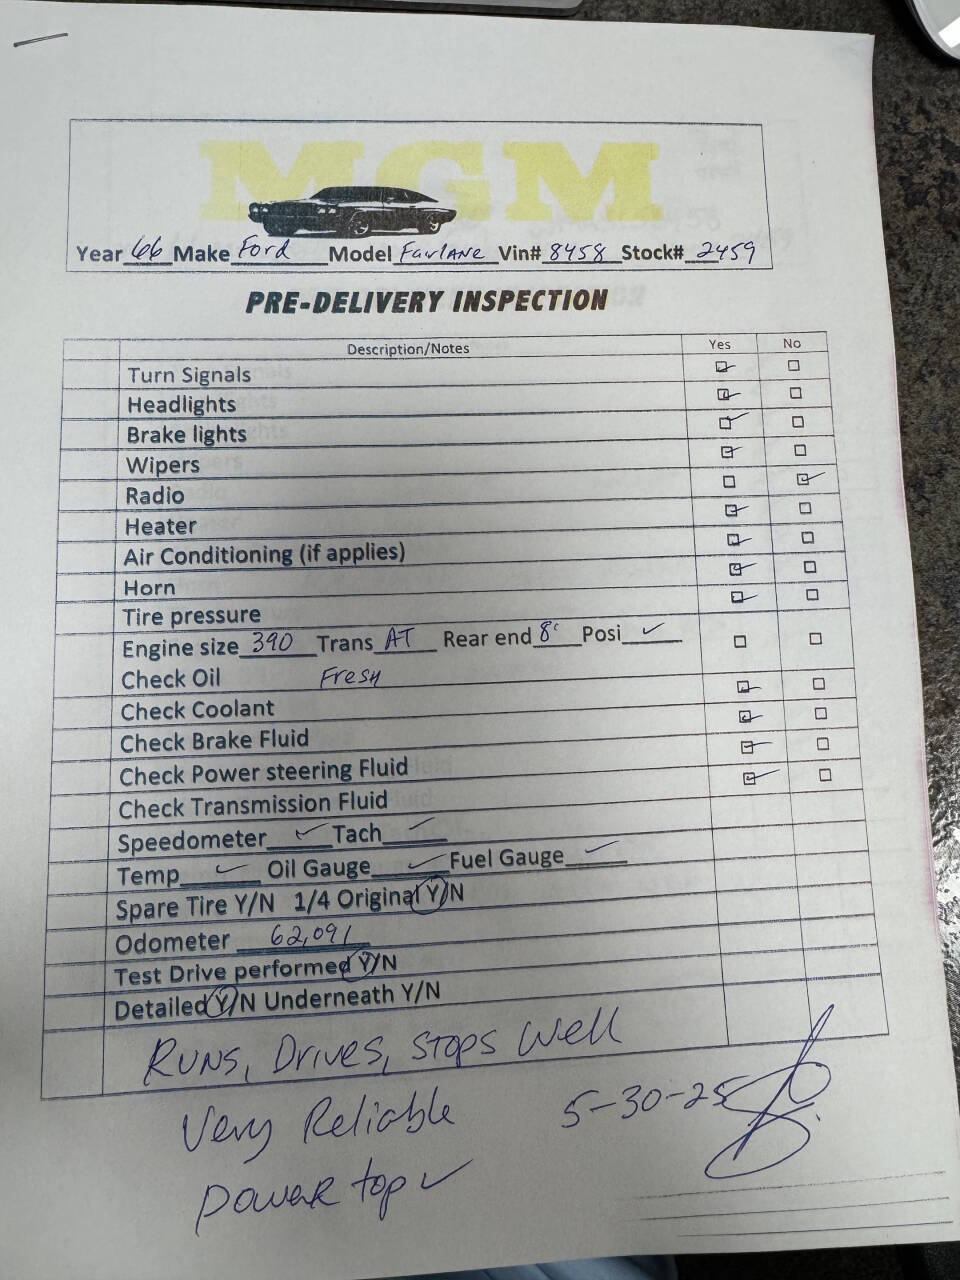 MGM
Year 66 Make Ford Model Fairlane Vin# 8458 Stock# 2459
PRE-DELIVERY INSPECTION
Description/Notes Yes No
Turn Signals
Headlights
Brake lights
Wipers
Radio
Heater
Air Conditioning (if applies)
Horn
Tire pressure
Engine size 390 Trans AT Rear end 8" Posi ✓
Check Oil Fresh
Check Coolant
Check Brake Fluid
Check Power steering Fluid
Check Transmission Fluid
Speedometer ✓ Tach ✓
Temp ✓ Oil Gauge ✓ Fuel Gauge ✓
Spare Tire Y/N 1/4 Original Y/N
Odometer 62,091
Test Drive performed Y/N
Detailed Y/N Underneath Y/N
Runs, Drives, Stops Well
Very Reliable 5-30-25
power top ✓